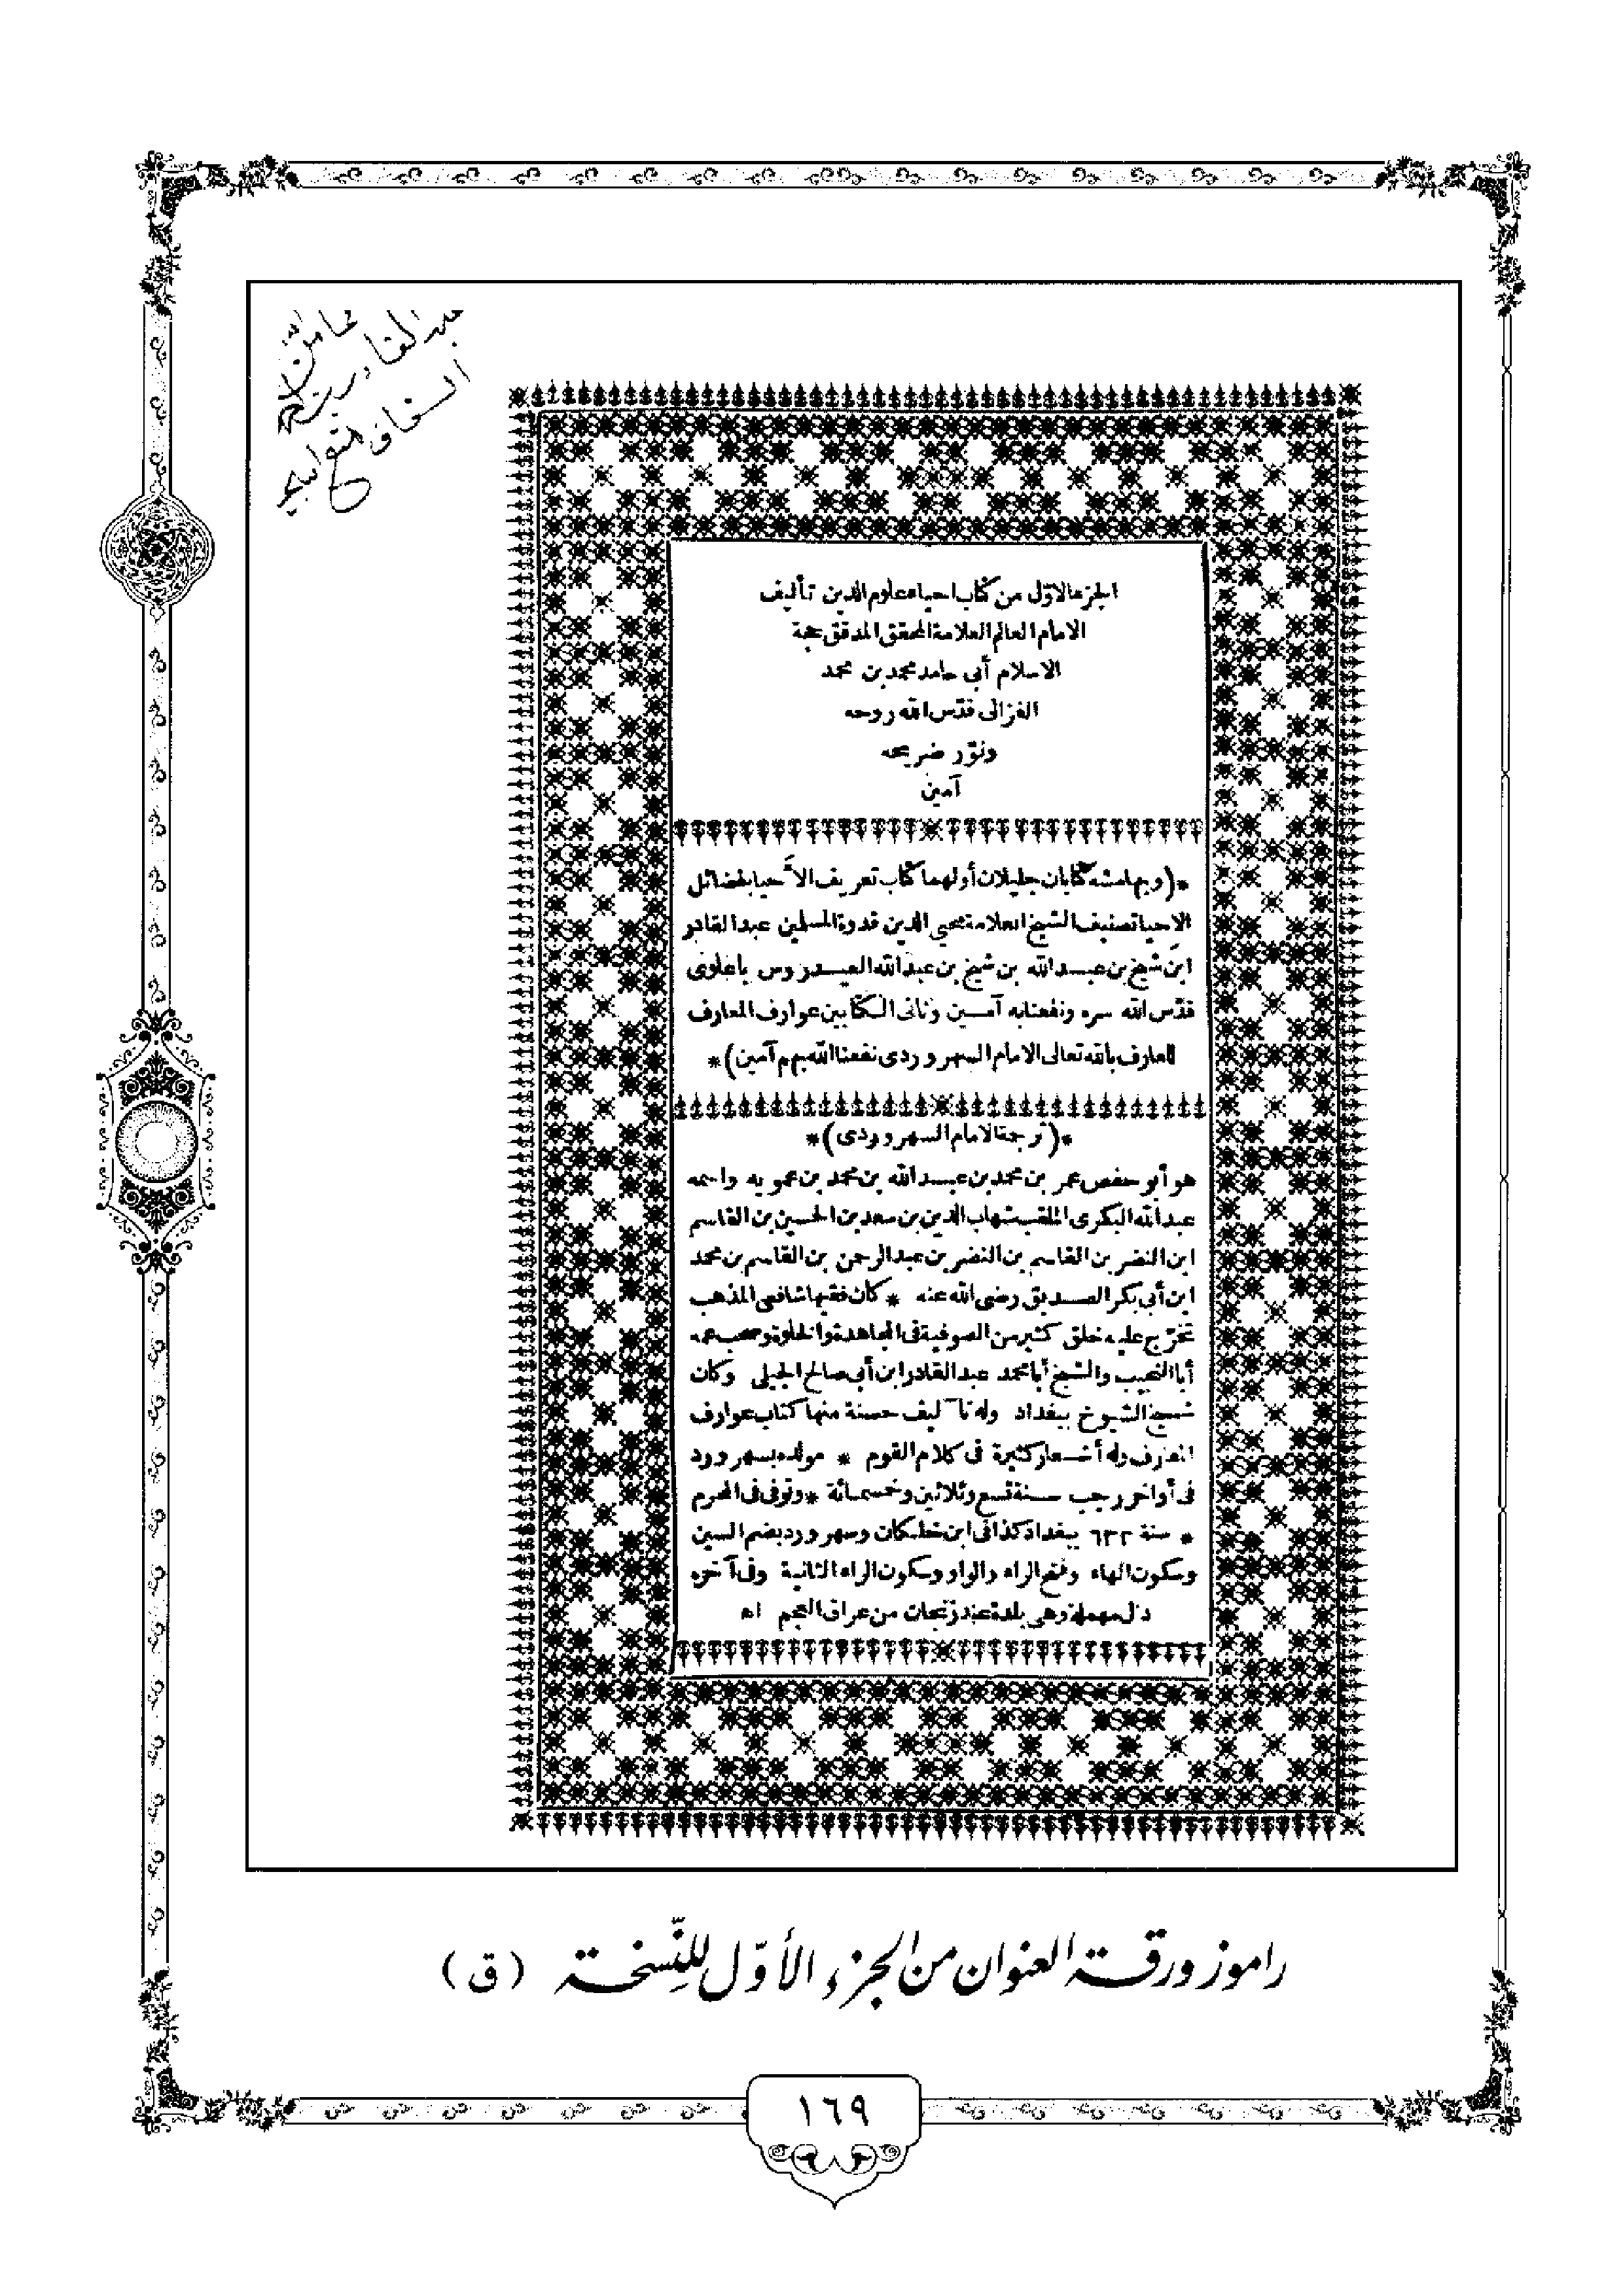 عبد القادر بن
السقاف
الجزء الاول من كتاب احياء علوم الدين تأليف
الامام العالم العلامة المحقق المدقق حجة
الاسلام أبى حامد محمد بن محمد
الغزالى قدّس الله روحه
ونوّر ضريحه
آمين
*(وبهامشه كتابان جليلان أولهما كتاب تعريف الأحيا بفضائل
الاحيا تصنيف الشيخ العلامة محيى الدين قدوة المسلمين عبد القادر
ابن شيخ بن عبد الله بن شيخ بن عبد الله العيدروس باعلوى
قدّس الله سره ونفعنا به آمين وثانى الكتابين عوارف المعارف
للعارف بالله تعالى الامام السهروردى نفعنا الله بهم آمين)*
*(ترجمة الامام السهروردى)*
هو أبو حفص عمر بن محمد بن عبد الله بن محمد بن عمويه واسمه
عبد الله البكرى الملقب شهاب الدين بن سعد بن الحسين بن القاسم
ابن النضر بن القاسم بن النضر بن عبد الرحمن بن القاسم بن محمد
ابن أبى بكر الصديق رضى الله عنه * كان فقيها شافعى المذهب
تخرّج عليه خلق كثير من الصوفية فى المجاهدة والخلوة وصحب عمه
أبا النجيب والشيخ أبا محمد عبد القادر ابن أبى صالح الجيلى وكان
شيخ الشيوخ ببغداد وله تآليف حسنة منها كتاب عوارف
المعارف وله أشعار كثيرة فى كلام القوم * مولده بسهرورد
فى أواخر رجب سنة تسع وثلاثين وخمسمائة * وتوفى فى المحرم
* سنة ٦٣٢ ببغداد كذا فى ابن خلكان وسهرورد بضم السين
وسكون الهاء وفتح الراء والواو وسكون الراء الثانية وفى آخره
دال مهملة وهى بلدة عند زنجان من عراق العجم اه
راموز ورقة العنوان من الجزء الأوّل للنّسخة (ق)
١٦٩